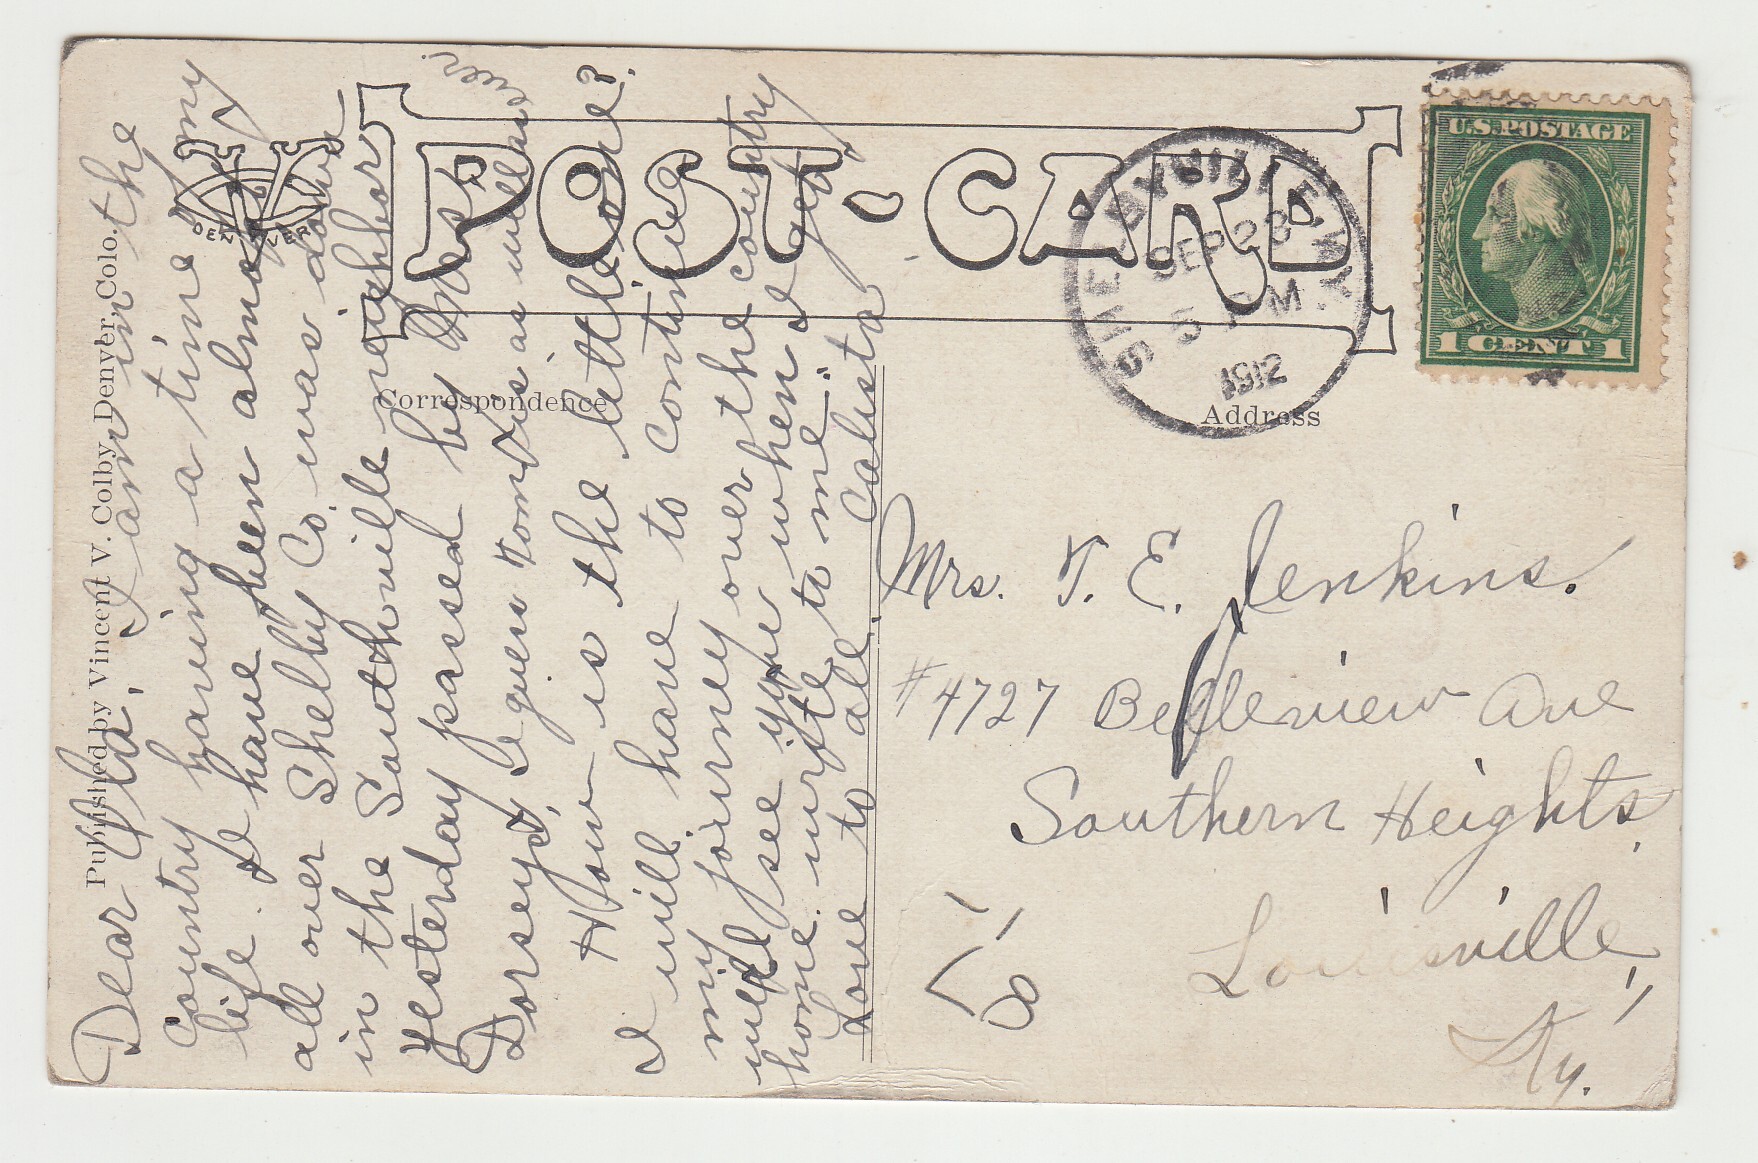 POST-CARD
U.S. POSTAGE
1 CENT 1
SHELBYVILLE, KY.
SEP 23
5 PM
1912
DENVER
Published by Vincent V. Colby, Denver, Colo.
Correspondence
Address
Dear
I am in the
country having a time of my
life. I have been almost
all over Shelby Co. was down
in the Southville neighbor
yesterday passed by Mrs.
Dorsey's, I guess Tom is as well as
ever.
How is the little one?
I will have to continue
my journey over the country
will see you when I get
home. write to me:
Love to all. Calista
Mrs. T. E. Jenkins.
#4727 Belleview Ave
Southern Heights,
Louisville,
Ky.